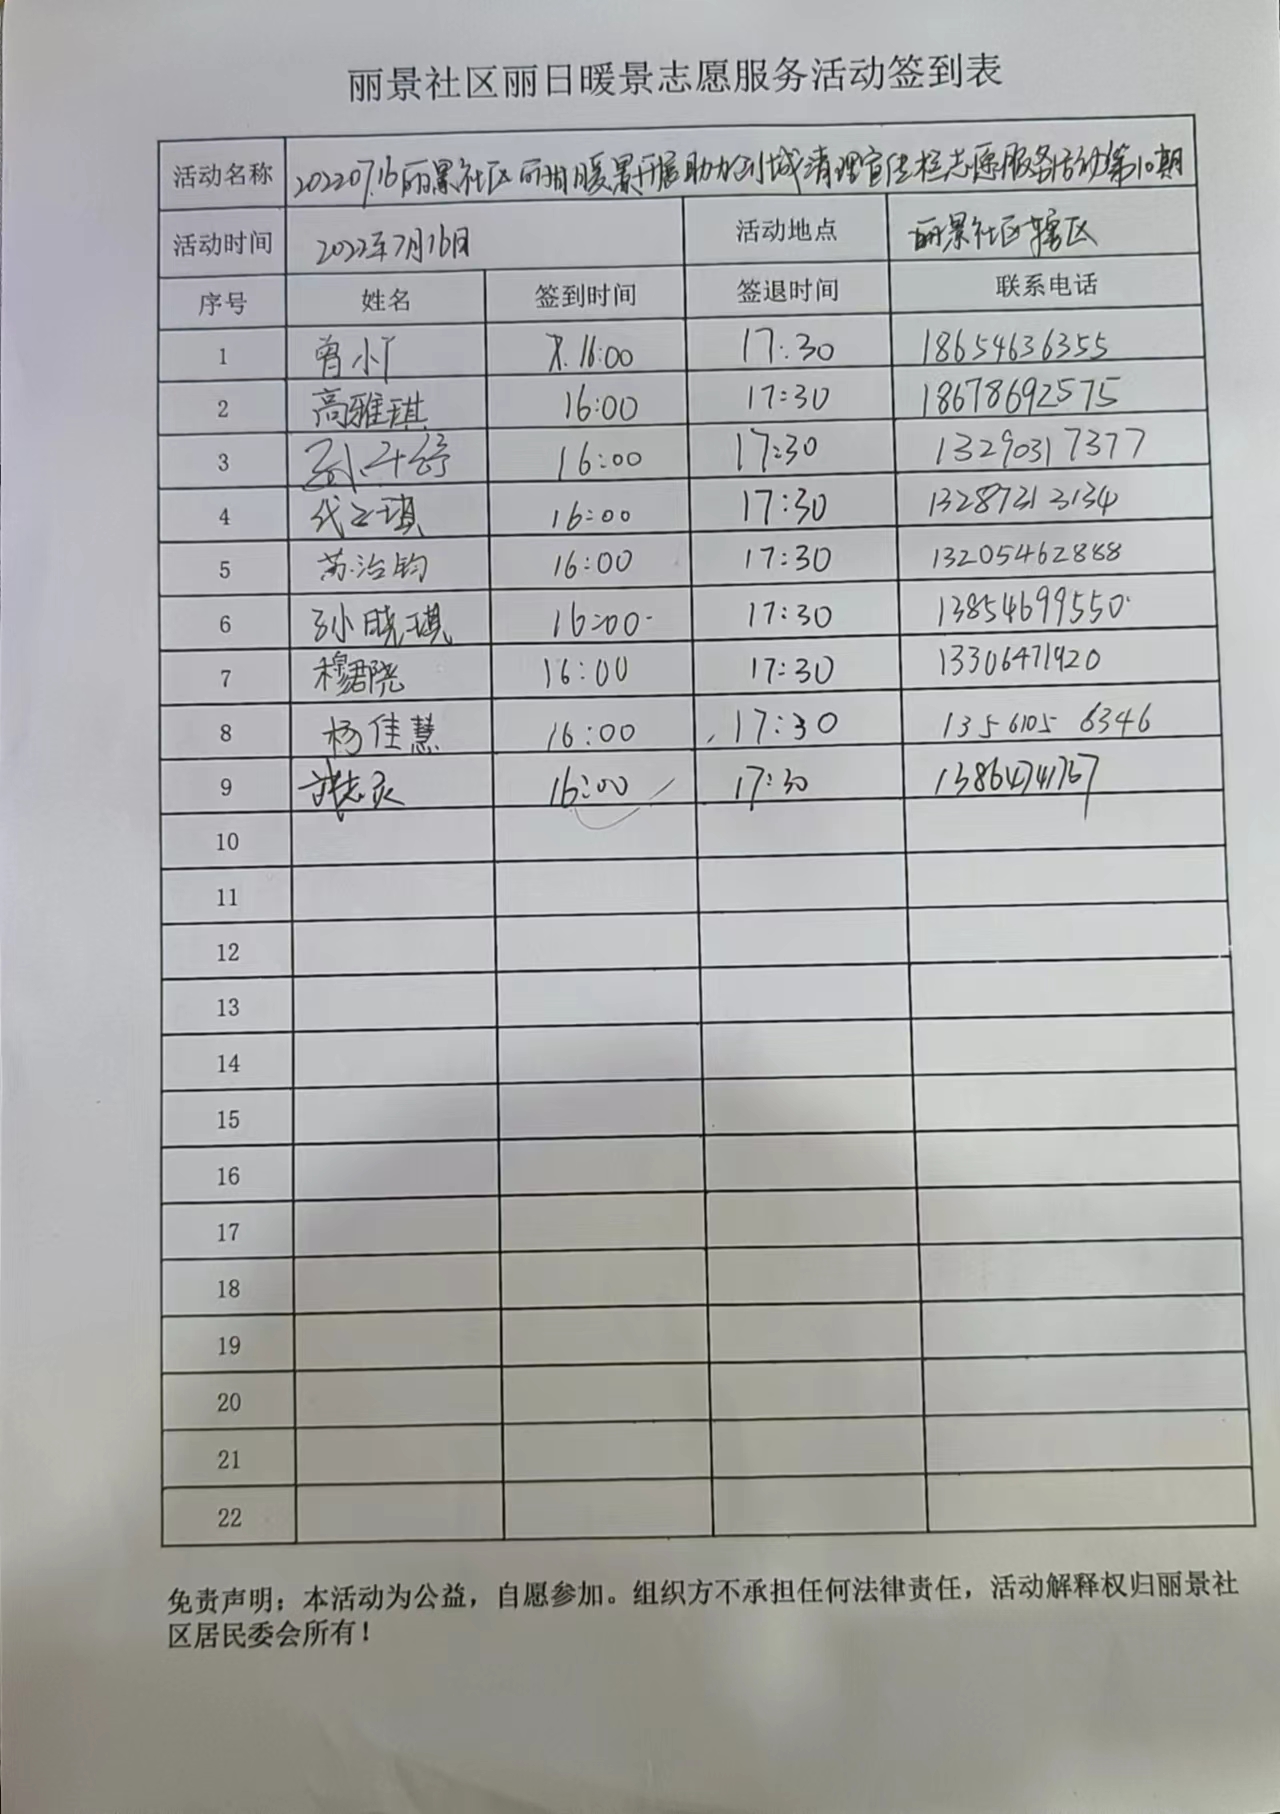 丽景社区丽日暖景志愿服务活动签到表
活动名称 20220716丽景社区丽日暖景开展助力创城清理宣传栏志愿服务活动第10期
活动时间 2022年7月16日 活动地点 丽景社区辖区
序号 姓名 签到时间 签退时间 联系电话
1 曾小 16:00 17:30 18654636355
2 高雅琪 16:00 17:30 18678692575
3 16:00 17:30 13290317377
4 琪 16:00 17:30 13287313134
5 苏治钧 16:00 17:30 13205462888
6 孙晓琪 16:00 17:30 13854699550
7 穆君晓 16:00 17:30 13306471920
8 杨佳慧 16:00 17:30 1356105 6346
9 张志 16:00 17:30
10
11
12
13
14
15
16
17
18
19
20
21
22
免责声明：本活动为公益，自愿参加。组织方不承担任何法律责任，活动解释权归丽景社
区居民委会所有！